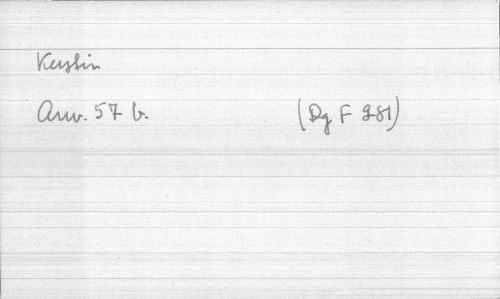 Kerstin
Arw. 57 b. (Dg F 281)